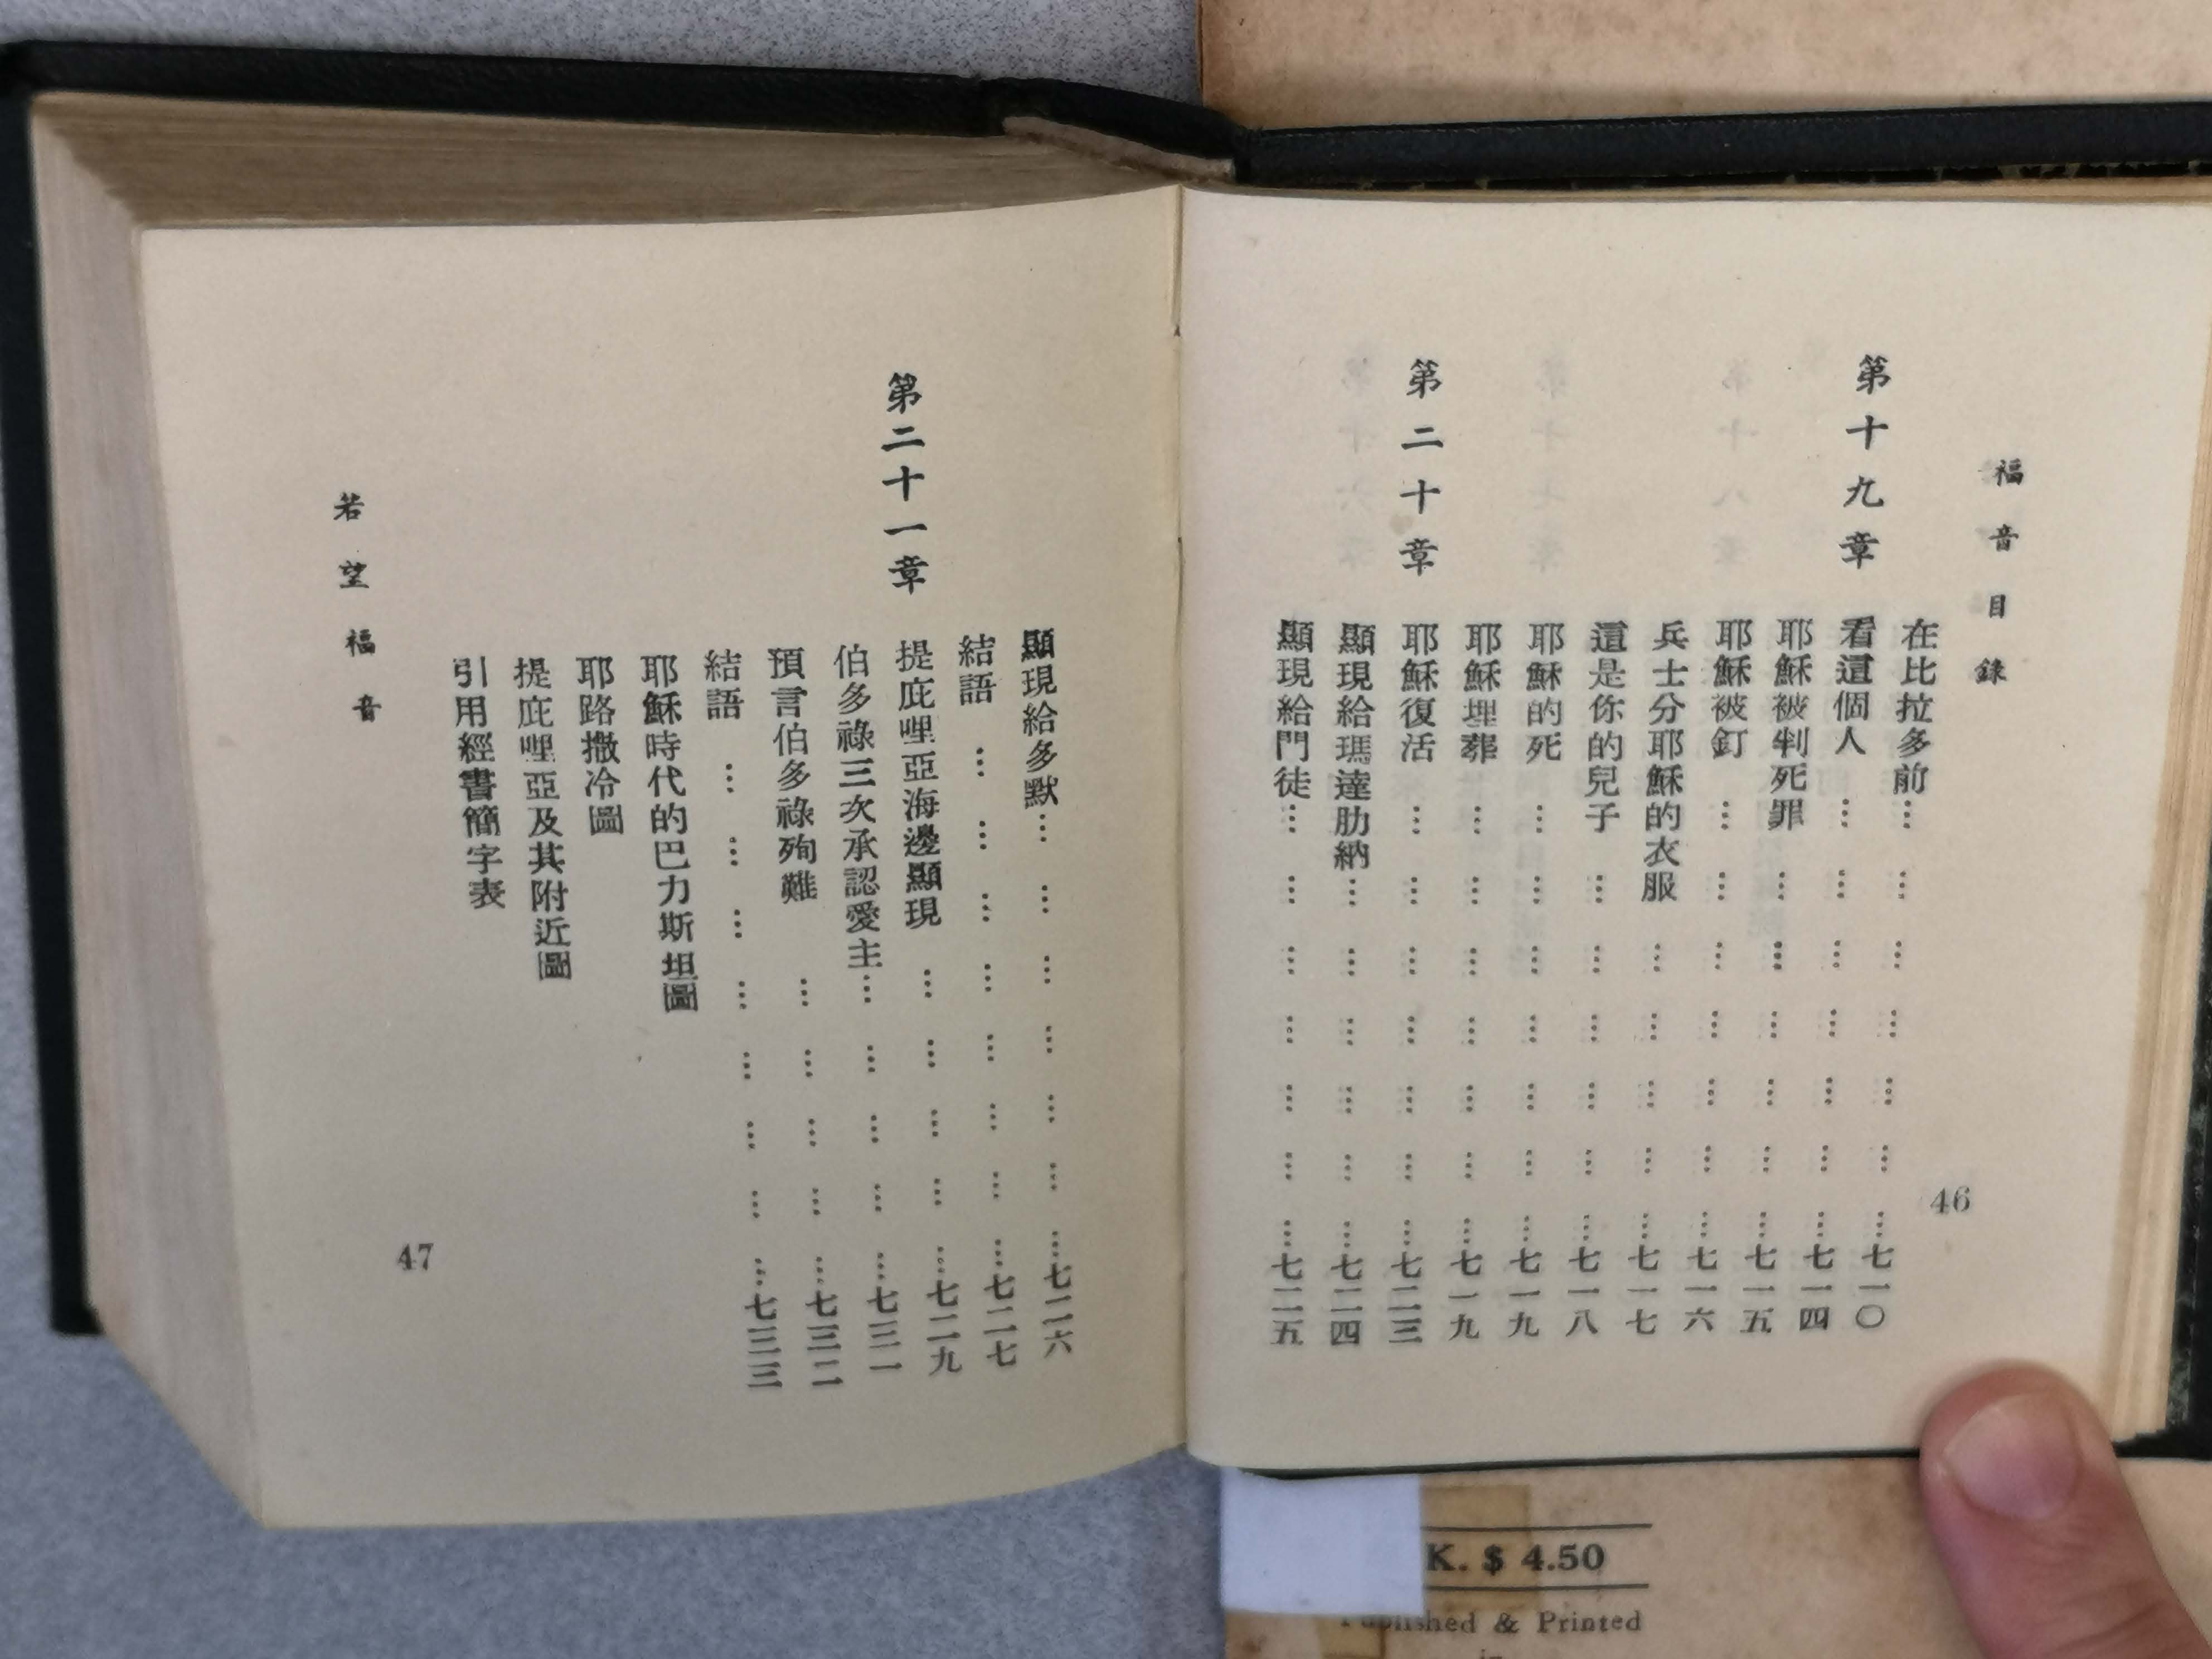 福音目錄
46
第十九章
在比拉多前⋯⋯⋯⋯⋯⋯⋯七一〇
看這個人⋯⋯⋯⋯⋯⋯⋯七一四
耶穌被判死罪⋯⋯⋯⋯⋯⋯七一五
耶穌被釘⋯⋯⋯⋯⋯⋯⋯七一六
兵士分耶穌的衣服⋯⋯⋯⋯⋯七一七
這是你的兒子⋯⋯⋯⋯⋯⋯七一八
耶穌的死⋯⋯⋯⋯⋯⋯⋯七一九
耶穌埋葬⋯⋯⋯⋯⋯⋯⋯七一九
第二十章
耶穌復活⋯⋯⋯⋯⋯⋯⋯七二三
顯現給瑪達肋納⋯⋯⋯⋯⋯⋯七二四
顯現給門徒⋯⋯⋯⋯⋯⋯⋯七二五
顯現給多默⋯⋯⋯⋯⋯⋯⋯七二六
結語⋯⋯⋯⋯⋯⋯⋯⋯七二七
第二十一章
提庇哩亞海邊顯現⋯⋯⋯⋯⋯七二九
伯多祿三次承認愛主⋯⋯⋯⋯⋯七三一
預言伯多祿殉難⋯⋯⋯⋯⋯七三二
結語⋯⋯⋯⋯⋯⋯⋯⋯七三三
耶穌時代的巴力斯坦圖
耶路撒冷圖
提庇哩亞及其附近圖
引用經書簡字表
若望福音
47
K. $ 4.50
Published & Printed